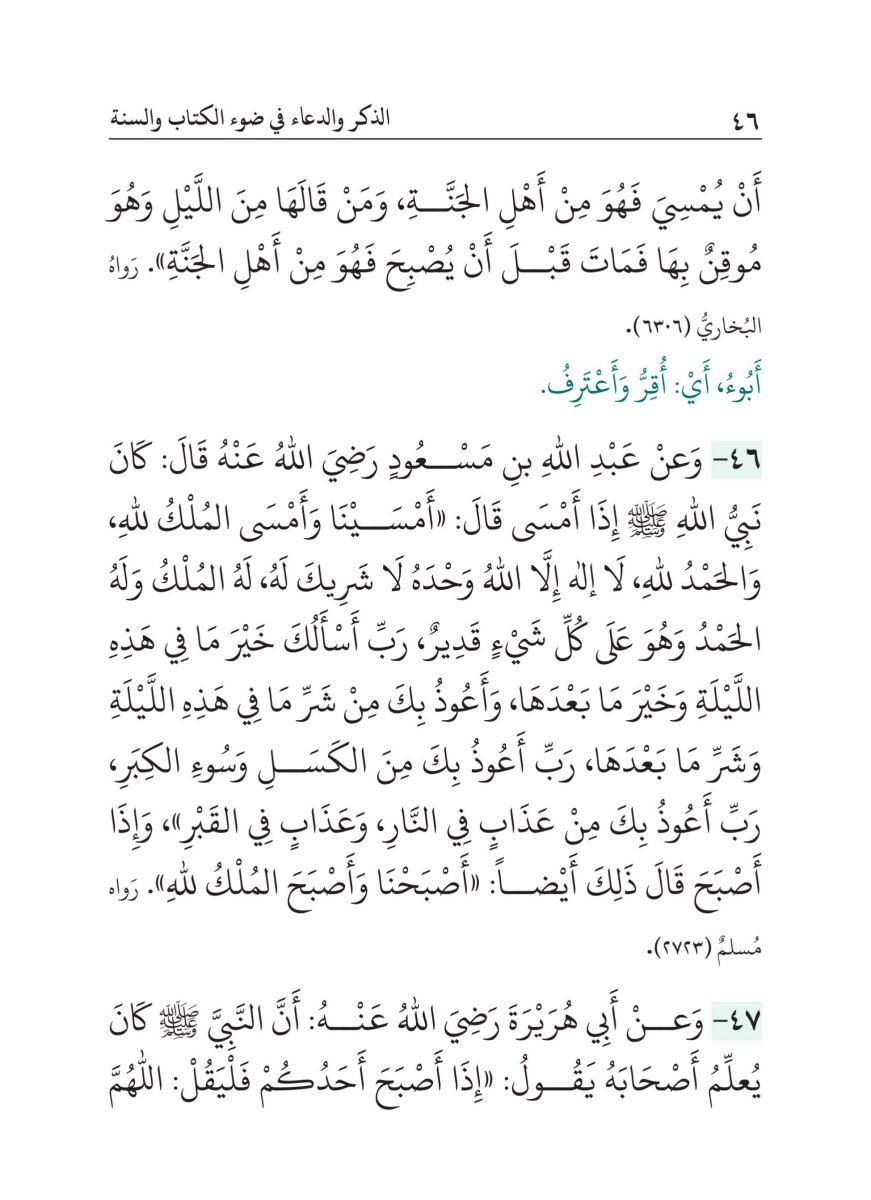 ٤٦ الذكر والدعاء في ضوء الكتاب والسنة
أَنْ يُمْسِيَ فَهُوَ مِنْ أَهْلِ الجَنَّـــةِ، وَمَنْ قَالَهَا مِنَ اللَّيْلِ وَهُوَ
مُوقِنٌ بِهَا فَمَاتَ قَبْـــلَ أَنْ يُصْبِحَ فَهُوَ مِنْ أَهْلِ الجَنَّةِ». رَواهُ
البُخاريُّ (٦٣٠٦).
أَبُوءُ، أَيْ: أُقِرُّ وَأَعْتَرِفُ.
٤٦- وَعنْ عَبْدِ اللهِ بنِ مَسْـــعُودٍ رَضِيَ اللهُ عَنْهُ قَالَ: كَانَ
نَبِيُّ اللهِ ﷺ إِذَا أَمْسَى قَالَ: «أَمْسَـــيْنَا وَأَمْسَى المُلْكُ للهِ،
وَالحَمْدُ للهِ، لَا إلٰه إِلَّا اللهُ وَحْدَهُ لَا شَرِيكَ لَهُ، لَهُ المُلْكُ وَلَهُ
الحَمْدُ وَهُوَ عَلَى كُلِّ شَيْءٍ قَدِيرٌ، رَبِّ أَسْأَلُكَ خَيْرَ مَا فِي هَذِهِ
اللَّيْلَةِ وَخَيْرَ مَا بَعْدَهَا، وَأَعُوذُ بِكَ مِنْ شَرِّ مَا فِي هَذِهِ اللَّيْلَةِ
وَشَرِّ مَا بَعْدَهَا، رَبِّ أَعُوذُ بِكَ مِنَ الكَسَـــلِ وَسُوءِ الكِبَرِ،
رَبِّ أَعُوذُ بِكَ مِنْ عَذَابٍ فِي النَّارِ، وَعَذَابٍ فِي القَبْرِ»، وَإِذَا
أَصْبَحَ قَالَ ذَلِكَ أَيْضـــاً: «أَصْبَحْنَا وَأَصْبَحَ المُلْكُ للهِ». رَواه
مُسلمٌ (٢٧٢٣).
٤٧- وَعـــنْ أَبِي هُرَيْرَةَ رَضِيَ اللهُ عَنْـــهُ: أَنَّ النَّبِيَّ ﷺ كَانَ
يُعلِّمُ أَصْحَابَهُ يَقُـــولُ: «إِذَا أَصْبَحَ أَحَدُكُمْ فَلْيَقُلْ: اللَّهُمَّ